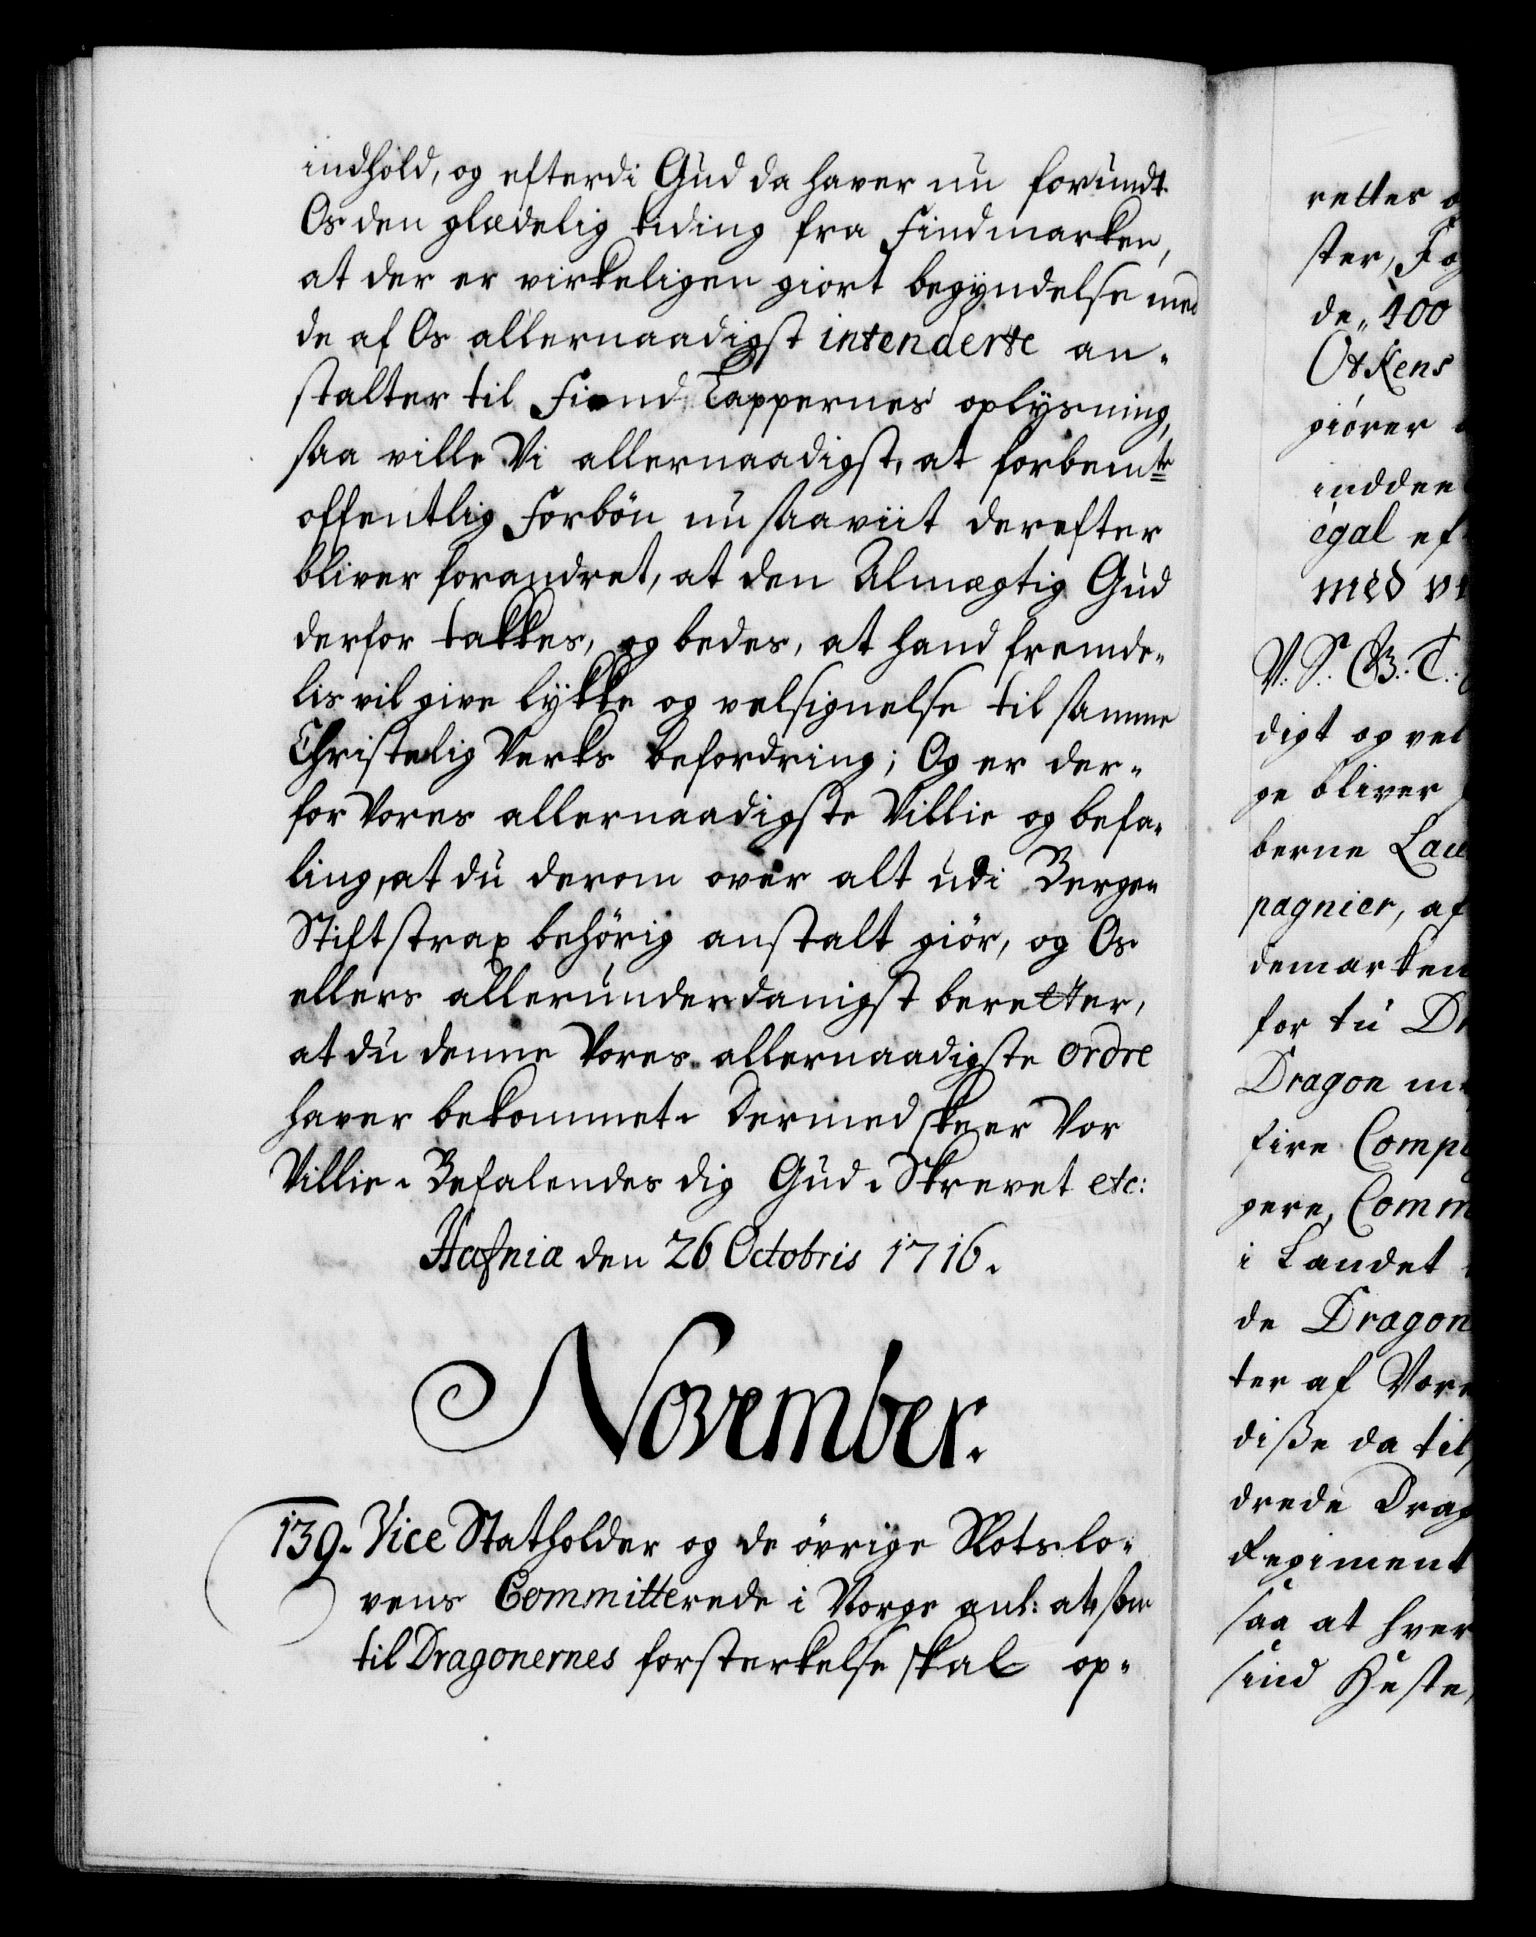 indhold, og efterdi Gud da haver nu forundt
Os den glædelig tiding fra Findmarken,
at der er virkeligen giort begyndelse med
de af Os allernaadigst intenderte an-
stalter til Find Lappernes oplysning,
saa ville Vi allernaadigst, at forbemte
offentlig Forbön nu saaviit derefter
bliver forandret, at den Almægtig Gud
derfor takkes, og bedes, at hand fremde-
lis vil give lykke og velsignelse til samme
Christelig Verks befordring; Og er der-
for Vores allernaadigste Villie og befa-
ling, at du derom over alt udi Bergen
Stift strax behörig anstalt giör, og Os
ellers allerunderdanigst beretter,
at du denne Vores allernaadigste ordre
haver bekommet. Dermed skeer Vor
Villie. Befalendes dig Gud. Skrevet etc:
Hafnia den 26 Octobris 1716.
November.
139. Vice Statholder og de övrige Slotslo-
vens Committerede i Norge anl: at som
til Dragonernes forsterkelse skal op-
rettes
ster, Fog
de, 400
Oxkens
giörer
inddee
egal ef
med
V. S. G. T.
digt og vel
ge bliver
berne Lau
pagnier, af
demarken
for tu Dr
Dragon
fire Comp
gere, Comm
i Landet
de Dragon
ter af Vore
diße da til
drede Drag
Regiment
saa at hver
sind Heste,